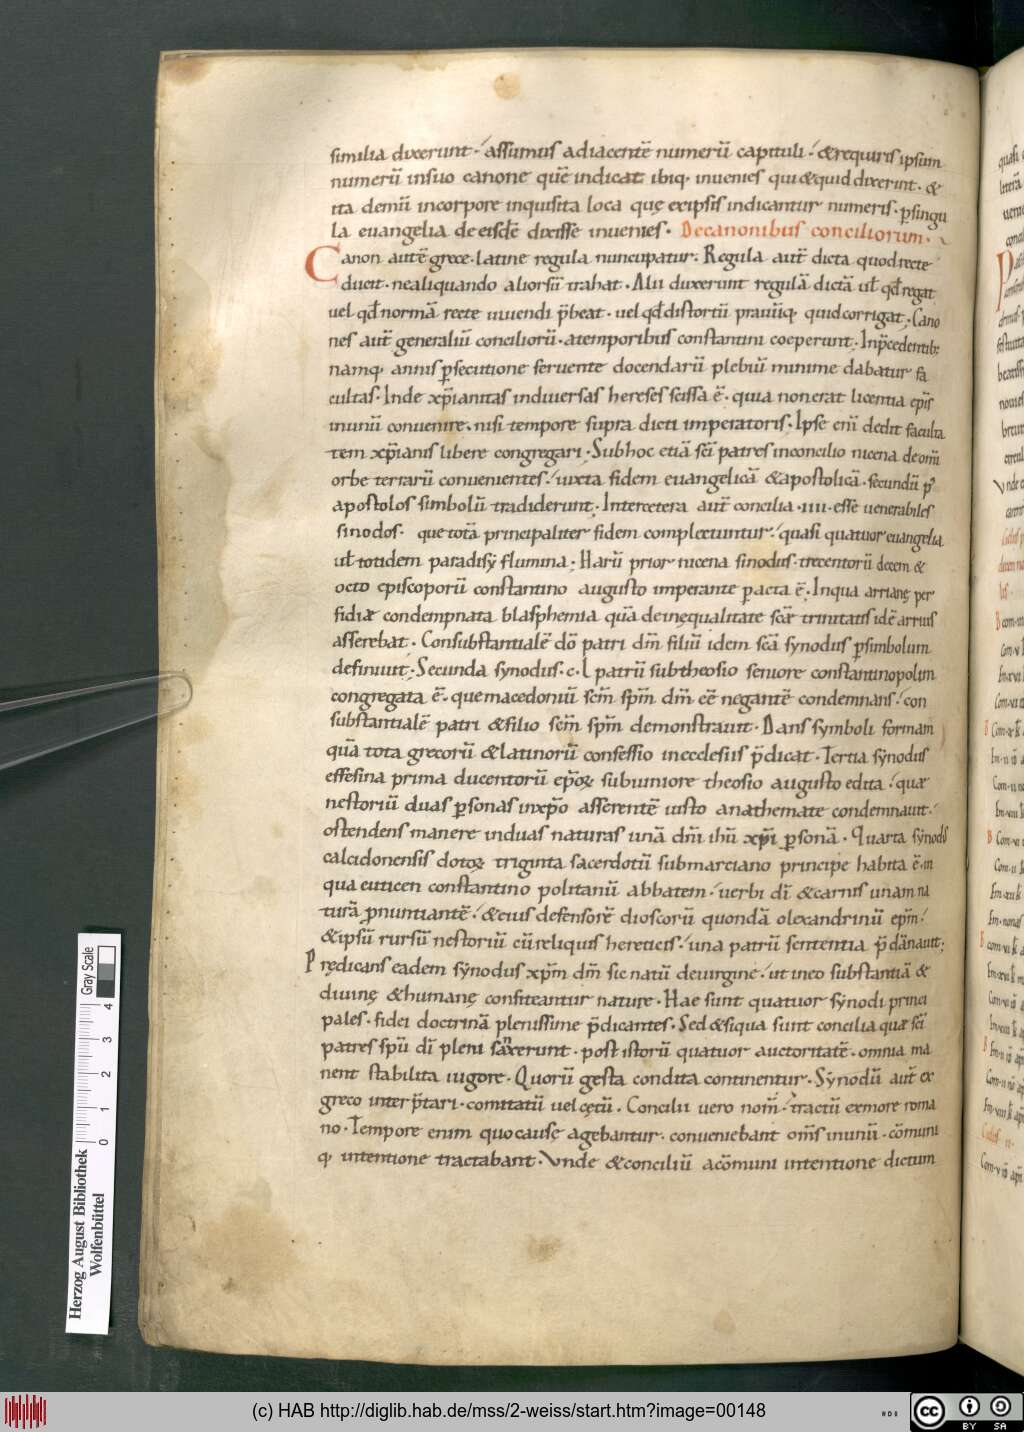 similia dixerunt · assumis adiacentē numerū capituli · & requiris ipsum
numerū insuo canone quē indicat ibiq, inuenies qui & quid dixerint · &
ita demū incorpore inquisita loca quę exipsis indicantur numeris · p̱singu
la euangelia deeisdē dixisse inuenies · Decanonibus conciliorum ·
Canon autē grece · latine regula nuncupatur · Regula aut̄ dicta quodrecte
ducit · nealiquando aliorsū trahat · Alii dixerunt regulā dictā ul̄ qd̄ regat
uel qd̄ normā recte uiuendi p̄beat · uel qd̄ distortū prauūq, quid corrigat ; Cano
nes aut̄ generaliū conciliorū · atemporibus constantini coeperunt ; Inp̄cedentibꝫ
namq, annis p̱secutione feruente docendarū plebiū minime dabatur fa
cultas · Inde xp̄ianitas indiuersas hereses scissa ē · quia nonerat licentia ep̄is
inunū conuenire · nisi tempore supra dicti imperatoris · Ipse eni̅ dedit faculta
tem xp̄ianis libere congregari · Subhoc etiā sc̄i patres inconcilio nicena deom̄i
orbe terrarū conuenientes · iuxta fidem euangelicā & apostolicā · secundū p̱
apostolos simbolū tradiderunt ; Intercetera aut̄ concilia · iiii · esse uenerabiles
sinodos · que totā principaliter fidem complectuntur · quasi quatuor euangelia
ul̄ totidem paradisẏ flumina ; Harū prior nicena sinodus · trecentorū decem &
octo episcoporū constantino augusto imperante p̱acta ē ; Inqua arrianę per
fidiæ condempnata blasphemia quā deinęqualitate scǣ trinitatis idē arrius
asserebat · Consubstantialē dō patri dm̄ filiū idem scā̄ synodus p̱simbolum
definiuit ; Secunda synodus · c · l patrū subtheosio seniore constantinopolim
congregata ē · quemacedoniū sc̄m sp̄m dm̄ eē negantē condemnans · con
substantialē patri & filio sc̄m sp̄m demonstrauit · Dans symboli formam
quā tota grecorū & latinorū confessio inecclesiis p̄dicat · Tertia sẏnodus
effesina prima ducentorū ep̄oꝝ subiuniore theosio augusto edita · quæ
nestoriū duas p̱sonas inxp̄o asserentē iusto anathemate condemnauit ·
ostendens manere induas naturas unā dm̄i ihū xp̄i p̱sonā · Quarta sẏnodus
calcidonensis dctoꝝ triginta sacerdotū submarciano principe habita ē · in
qua euticen constantino politanū abbatem · uerbi dī & carnis unam na
turā p̱nuntiantē · & eius defensorē dioscorū quondā olexandrinū ep̄m ·
& ipsū rursū nestoriū cū reliquis hereticis · una patrū sententia p̄dānauit ;
Prędicans eadem sẏnodus xp̄m dm̄ sic natū deuirgine · ut ineo substantiā &
diuinę & humanę confiteantur nature · Hae sunt quatuor sẏnodi princi
pales · fidei doctrinā plenissime p̄dicantes · Sed & siqua sunt concilia quæ sc̄i
patres sp̄u dī pleni sanxerunt · post istorū quatuor auctoritatē · omnia ma
nent stabilita uigore · Quorū gesta condita continentur · Sẏnodū aut̄ ex
greco interp̄tari · comitatū uel cętū · Concilii uero nom̄ · tractū exmore roma
no · Tempore enim quo causę agebantur · conueniebant om̄s inunū · cōmuni
q, intentione tractabant · Vnde & conciliū acōmuni intentione dictum
Herzog August Bibliothek
Wolfenbüttel
Gray Scale
0 1 2 3 4
(c) HAB http://diglib.hab.de/mss/2-weiss/start.htm?image=00148
cc BY SA